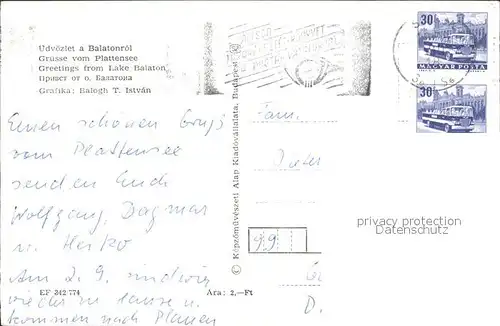 Üdvözlet a Balatonról
Grüsse vom Plattensee
Greetings from Lake Balaton
Привет от о. Балатона
Grafika: Balogh T. István
Einen schönen Gruß
vom Plattensee
senden Euch
Wolfgang, Dagmar
u. Heiko
Am 2. 9. sind wir
wieder zu Hause u.
kommen nach Plauen
EF 342 774
Ára: 2,—Ft
© Képzőművészeti Alap Kiadóvállalata, Budapest
30f
MAGYAR POSTA
30f
Fam.
Dieter
99
D.
privacy protection
Datenschutz